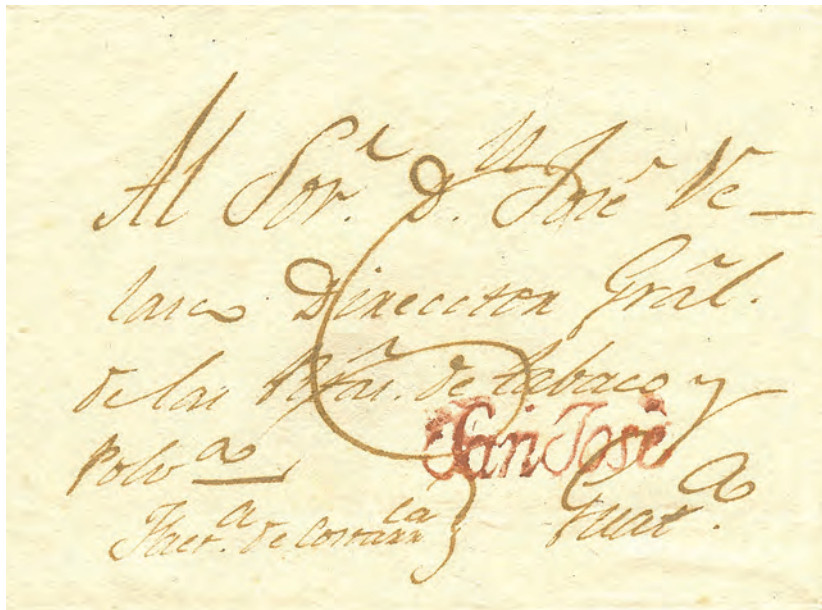 Al Sor. D. José Ve_
lasco Director Grál.
de las Rtas. de tabaco y
Polvª
San José
Factª. de Costarrca Guatª.